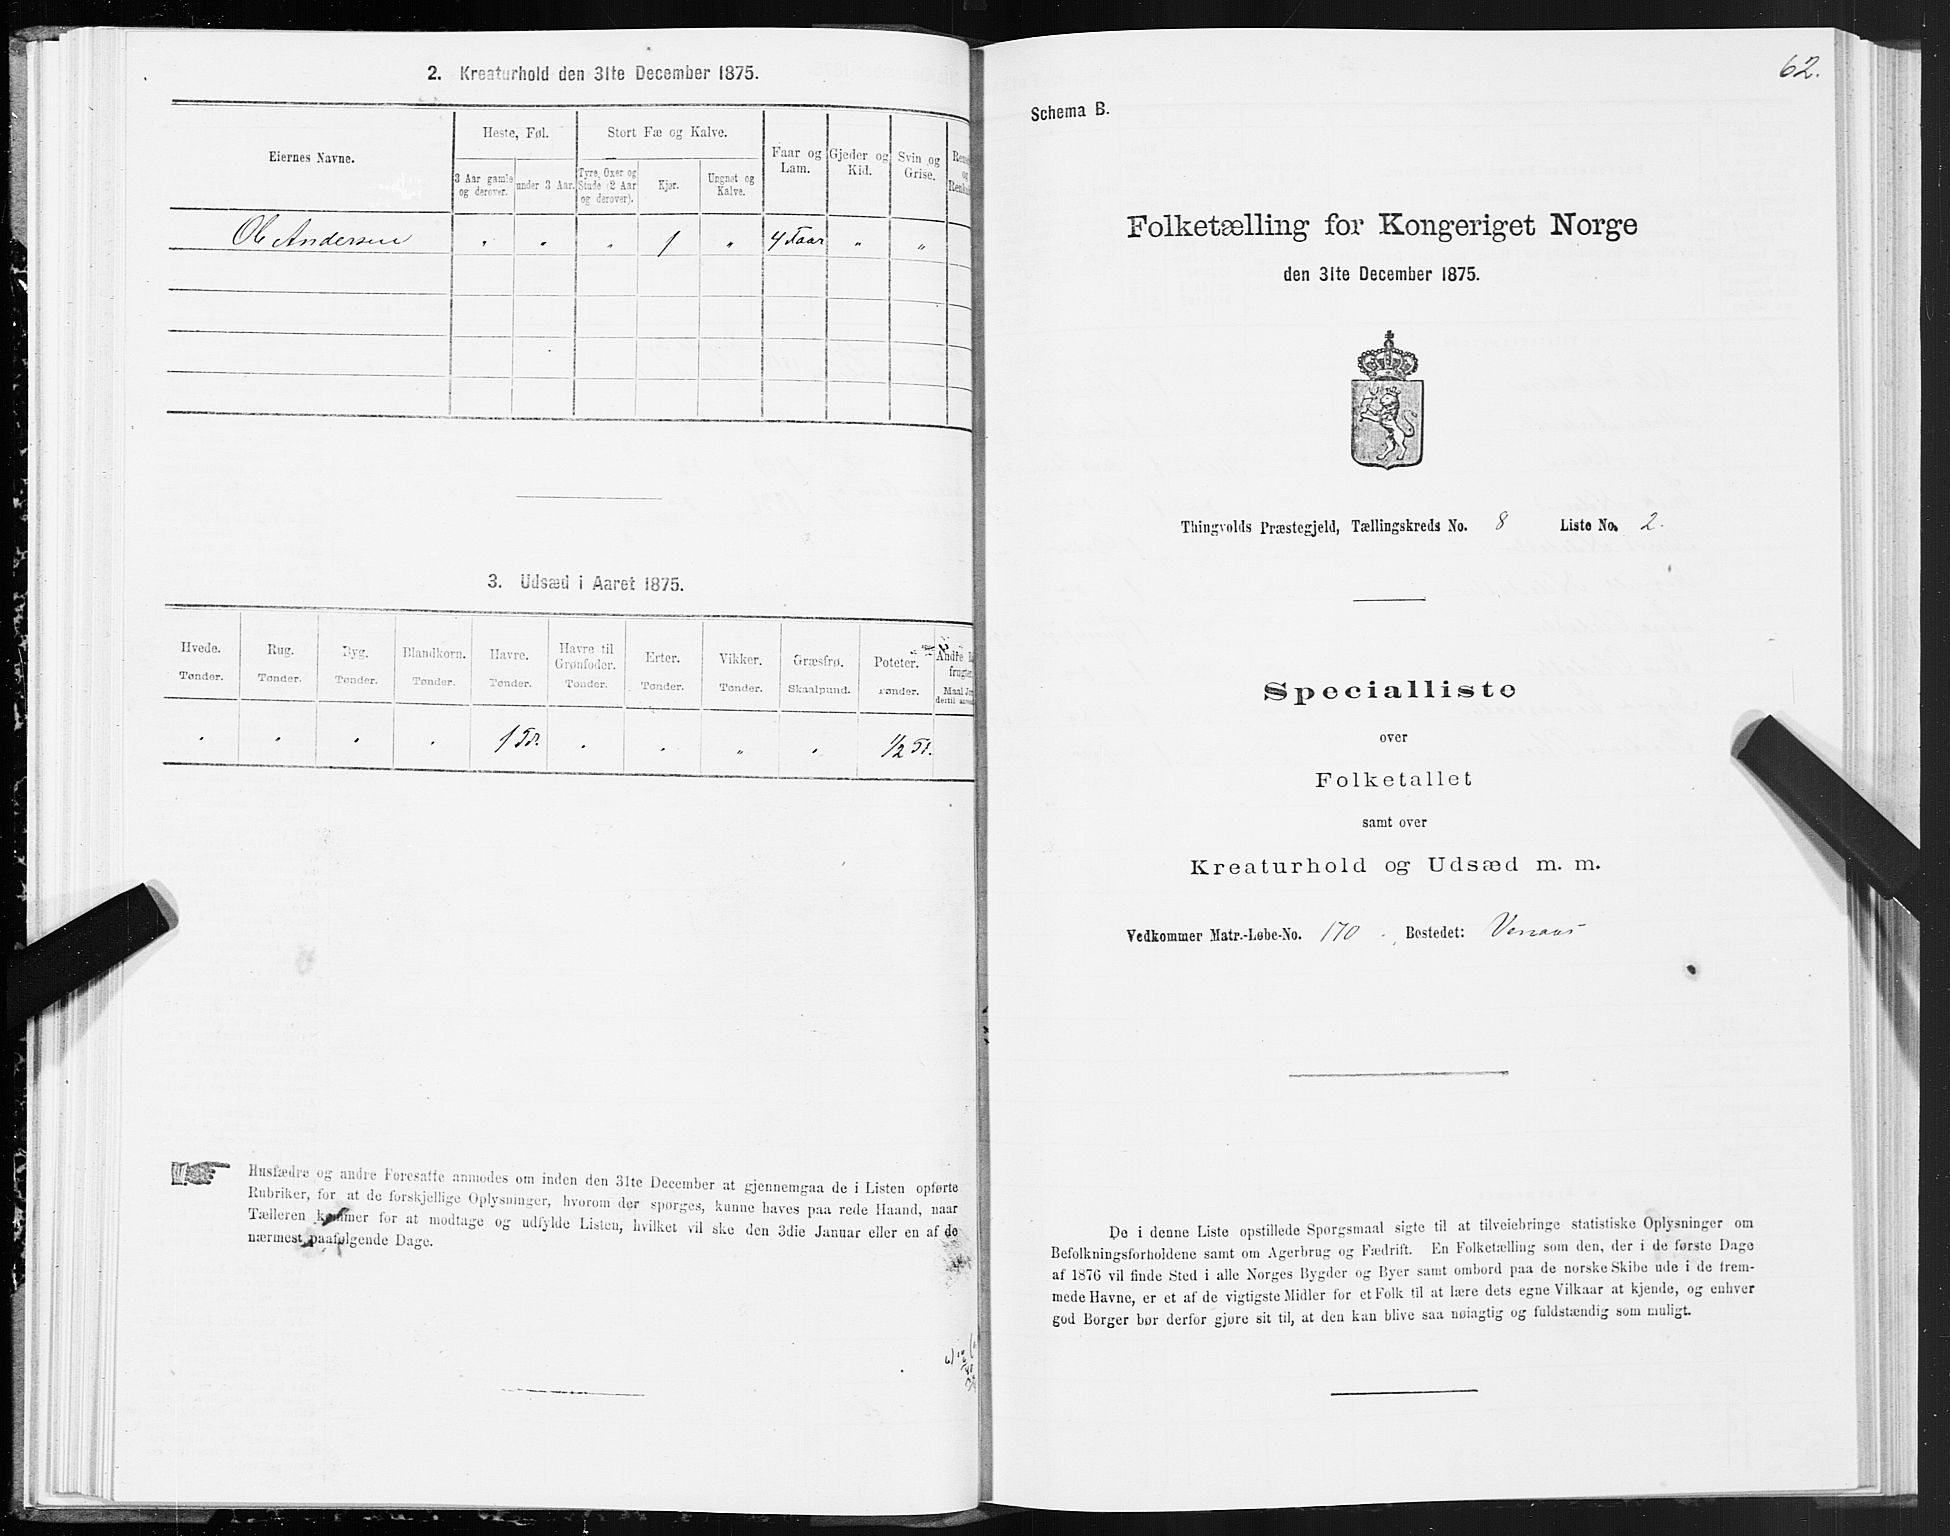 2. Kreaturhold den 31te December 1875.
Eiernes Navne.
Heste, Føl.
Stort Fæ og Kalve.
Faar og Lam.
Gjeder og Kid.
Svin og Grise.
3 Aar gamle og derover.
under 3 Aar.
Tyre, Oxer og Stude (2 Aar og derover).
Kjør.
Ungnøt og Kalve.
Ole Andersen " " " 1 " 4 Faar " "
3. Udsæd i Aaret 1875.
Hvede. Rug. Byg. Blandkorn. Havre. Havre til Grønfoder. Erter. Vikker. Græsfrø. Poteter.
Tønder. Tønder. Tønder. Tønder. Tønder. Tønder. Tønder. Tønder. Skaalpund. Tønder.
" " " " 1 Td. " " " " 1/2 Td.
Husfædre og andre Foresatte anmodes om inden den 31te December at gjennemgaa de i Listen opførte
Rubriker, for at de forskjellige Oplysninger, hvorom der spørges, kunne haves paa rede Haand, naar
Tælleren kommer for at modtage og udfylde Listen, hvilket vil ske den 3die Januar eller en af de
nærmest paafølgende Dage.
62.
Schema B.
Folketælling for Kongeriget Norge
den 31te December 1875.
Thingvolds Præstegjeld, Tællingskreds No. 8 Liste No. 2.
Specialliste
over
Folketallet
samt over
Kreaturhold og Udsæd m. m.
Vedkommer Matr.-Løbe-No. 170. Bostedet: Venaas
De i denne Liste opstillede Spørgsmaal sigte til at tilveiebringe statistiske Oplysninger om
Befolkningsforholdene samt om Agerbrug og Fædrift. En Folketælling som den, der i de første Dage
af 1876 vil finde Sted i alle Norges Bygder og Byer samt ombord paa de norske Skibe ude i de frem-
mede Havne, er et af de vigtigste Midler for et Folk til at lære dets egne Vilkaar at kjende, og enhver
god Borger bør derfor gjøre sit til, at den kan blive saa nøiagtig og fuldstændig som muligt.